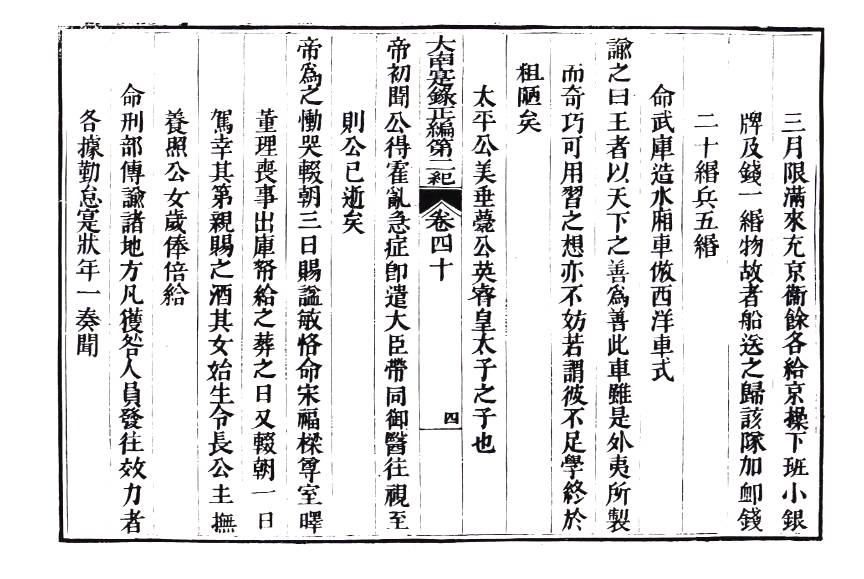 三月限滿來充京衞餘各給京操下班小銀
牌及錢一緡物故者船送之歸該隊加䘏錢
二十緡兵五緡
命武庫造水廂車倣西洋車式
諭之曰王者以天下之善爲善此車雖是外夷所製
而奇巧可用習之想亦不妨若謂彼不足學終於
粗陋矣
太平公美垂薨公英睿皇太子之子也
大南寔錄正編第二紀 卷四十 四
帝初聞公得霍亂急症卽遣大臣帶同御醫往視至
則公已逝矣
帝爲之慟哭輟朝三日賜諡敏恪命宋福樑尊室㬢
董理喪事出庫帑給之葬之日又輟朝一日
駕幸其第親賜之酒其女始生令長公主撫
養照公女歲俸倍給
命刑部傳諭諸地方凡獲咎人員發往效力者
各據勤怠寔狀年一奏聞